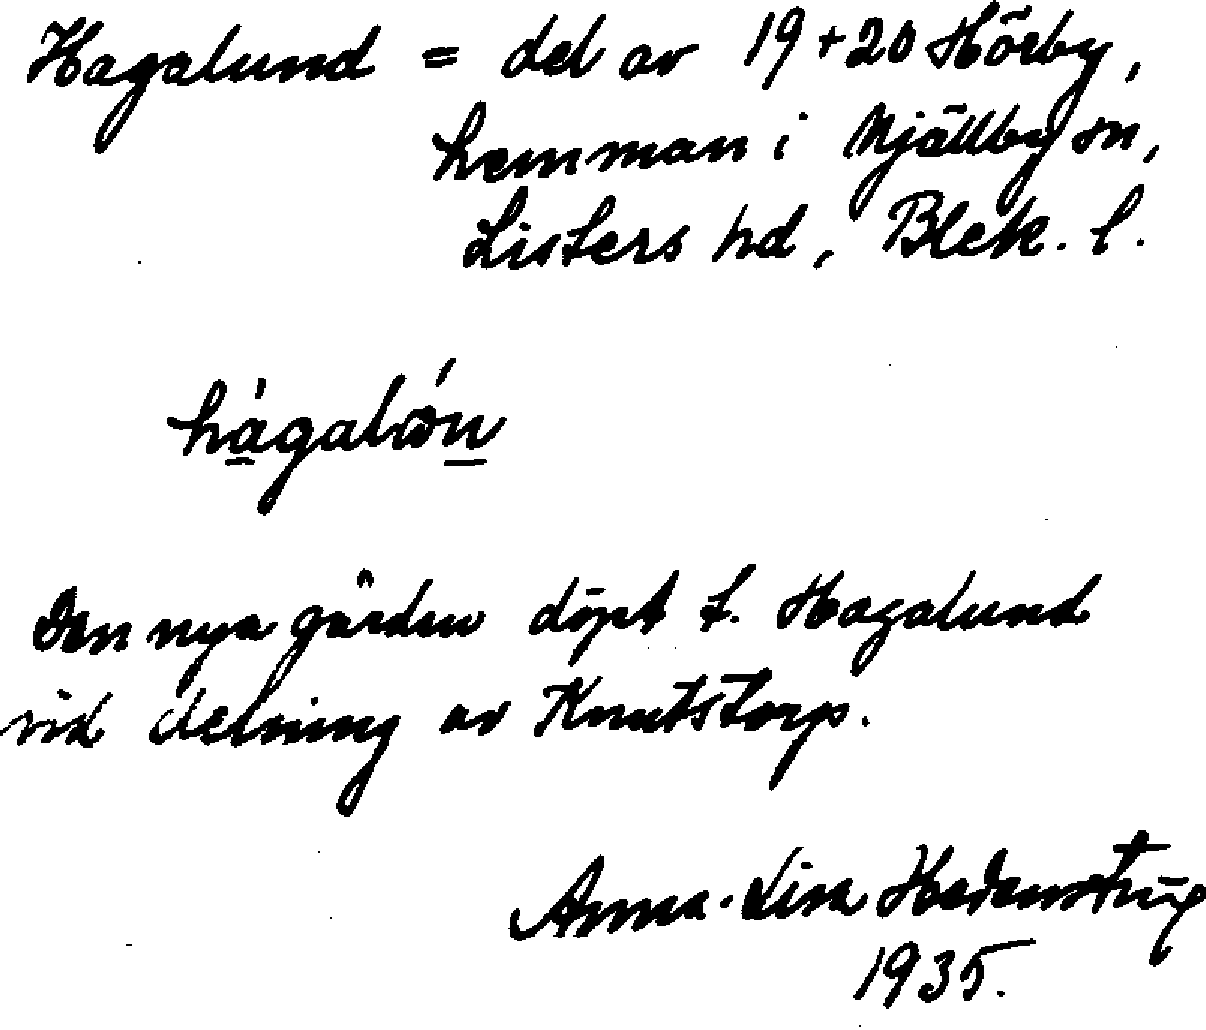 Hagalund = del av 19+20 Hörby,
hemman i Mjällby sn,
Listers hd, Blek. l.
Den nya gården döpt t. Hagalund
vid delning av Knutstorp.
Anna-Lisa
1935.